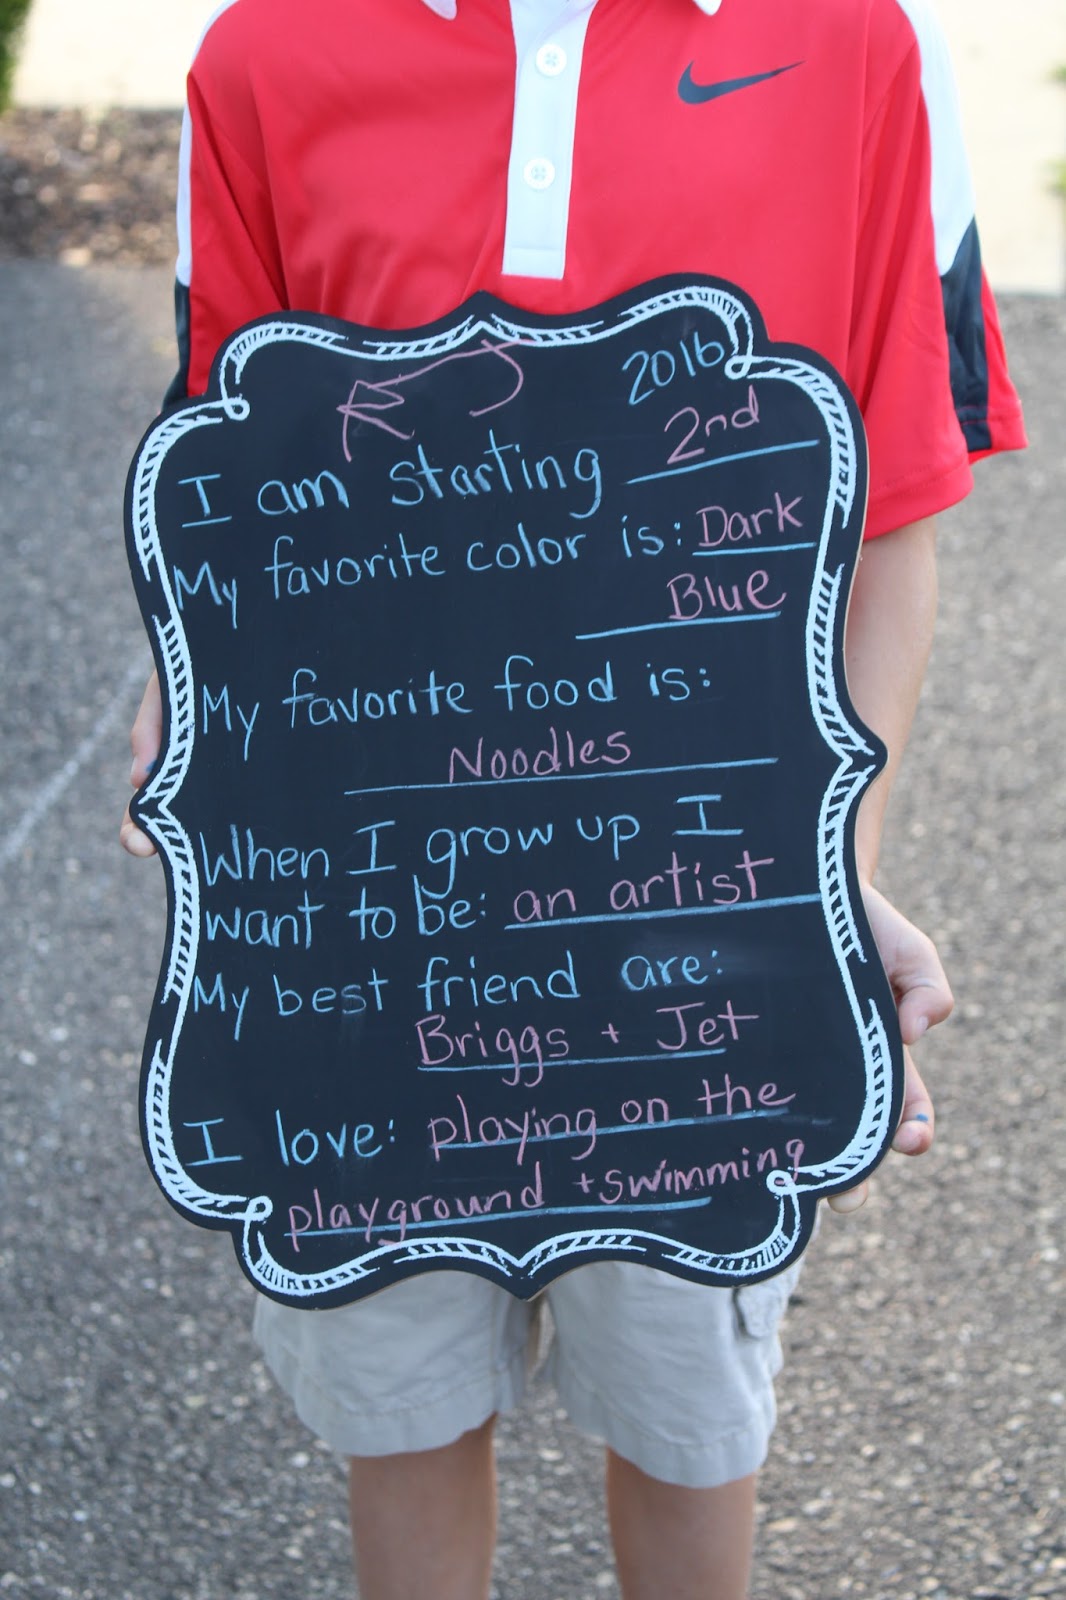 2016
I am starting 2nd
My favorite color is: Dark
Blue
My favorite food is:
Noodles
When I grow up I
want to be: an artist
My best friend are:
Briggs + Jet
I love: playing on the
playground + swimming